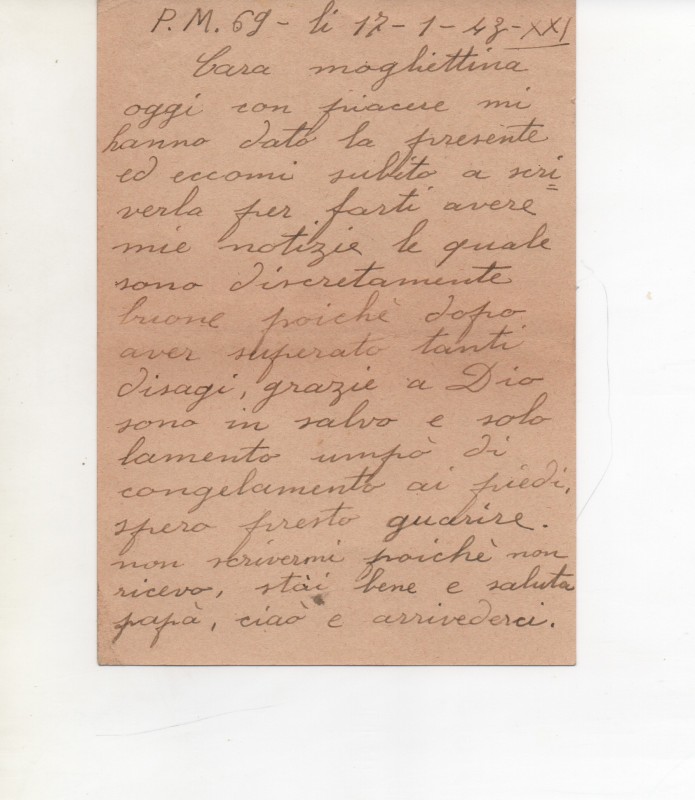 P.M. 69 - li 17-1-43-XXI
Cara moghiettina
oggi con piacere mi
hanno dato la presente
ed eccomi subito a scri=
verla per farti avere
mie notizie le quale
sono discretamente
buone poichè dopo
aver superato tanti
disagi, grazie a Dio
sono in salvo e solo
lamento umpò di
congelamento ai piedi,
spero presto guarire.
non scrivermi poichè non
ricevo, stai bene e saluta
papà, ciaò e arrivederci.